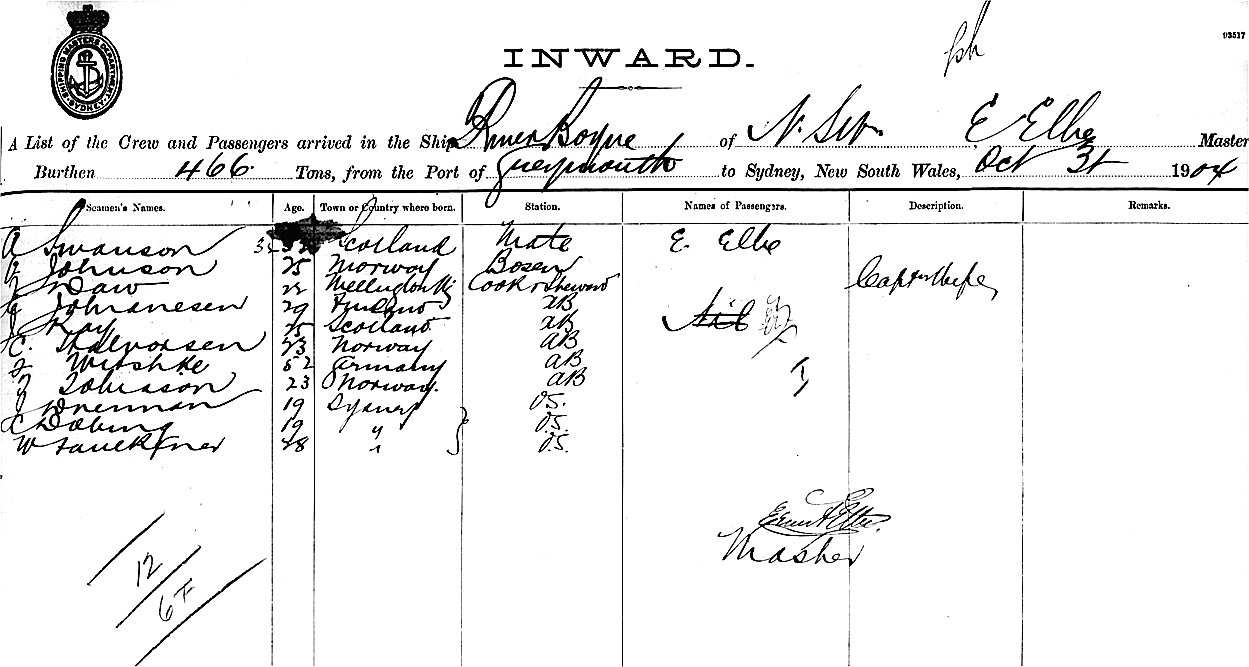 SHIPPING MASTERS DEPARTMENT SYDNEY
93517
INWARD.
A List of the Crew and Passengers arrived in the Ship River Boyne of E Elbe Master
Burthen 466 Tons, from the Port of Greymouth to Sydney, New South Wales, Oct 31 1904
Seamen's Names. Age. Town or Country where born. Station. Names of Passengers. Description. Remarks.
A Swanson Scotland Mate E. Elbe
Johnson 25 Norway Bosen
Daw Cook & Steward Capten Wife
Johanesen 29 Finland AB
Kay 25 Scotland AB Nil
C. Halvorsen 23 Norway AB
Witshke 52 Germany AB
Johnson 23 Norway. AB
Drennan 19 Sydney O.S.
19 " O.S.
W Faulkner 18 " O.S.
Ernst Elbe
Master
12
6 F